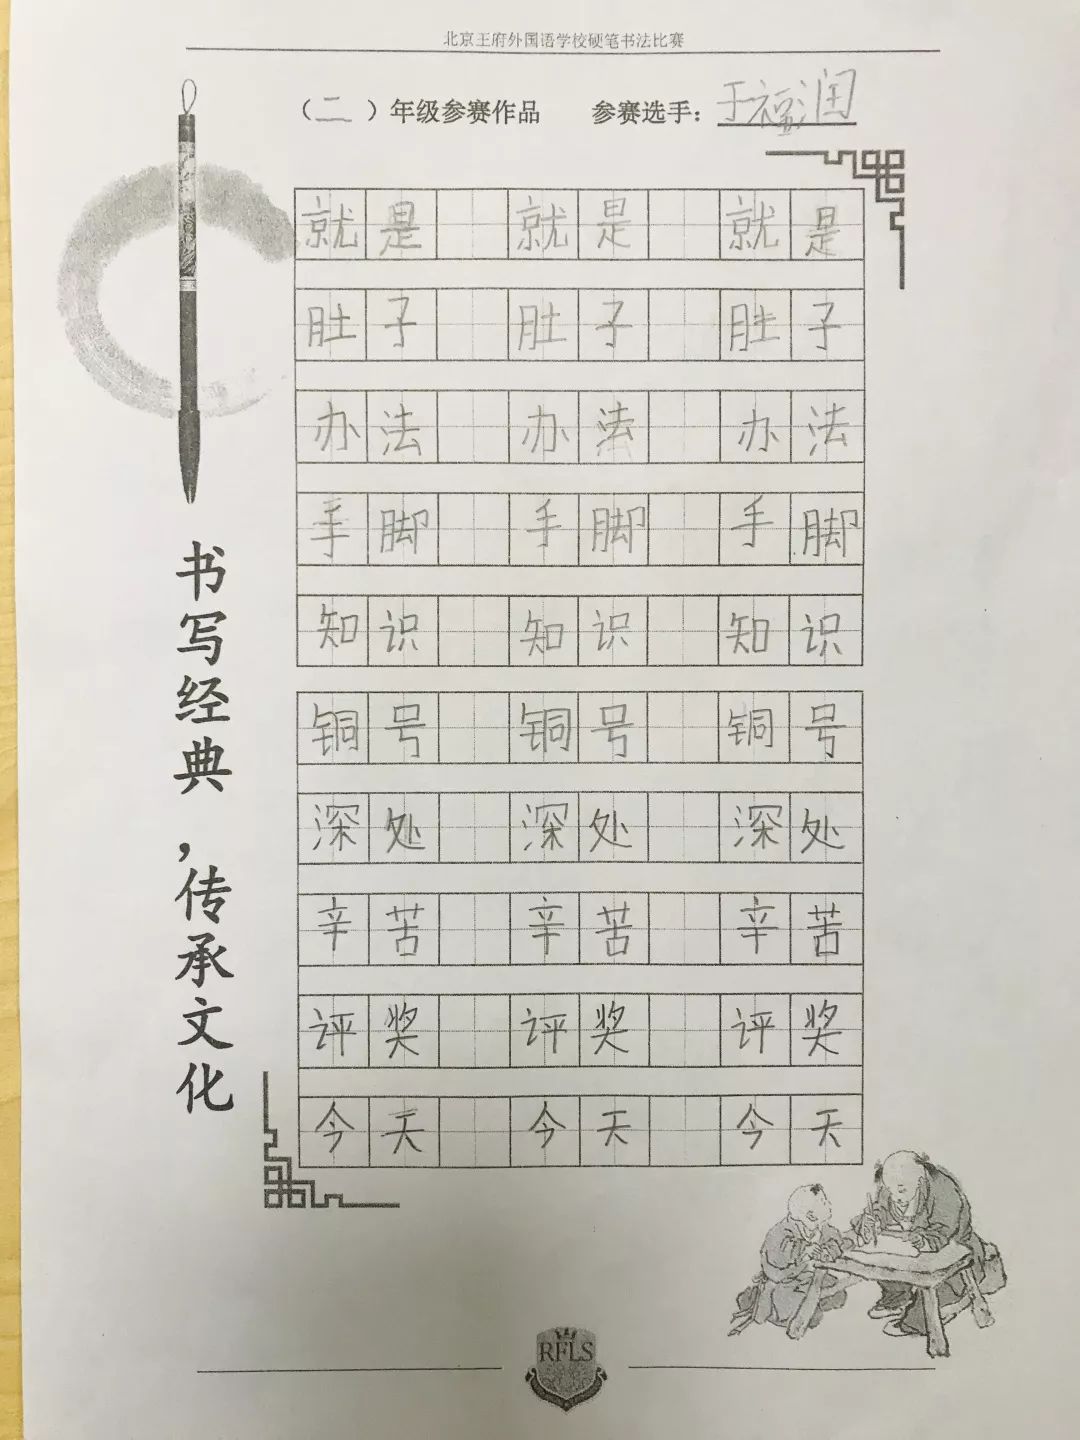 北京王府外国语学校硬笔书法比赛
（二）年级参赛作品 参赛选手：于福润
就是 就是 就是
肚子 肚子 肚子
办法 办法 办法
手脚 手脚 手脚
知识 知识 知识
铜号 铜号 铜号
深处 深处 深处
辛苦 辛苦 辛苦
评奖 评奖 评奖
今天 今天 今天
书写经典，传承文化
RFLS